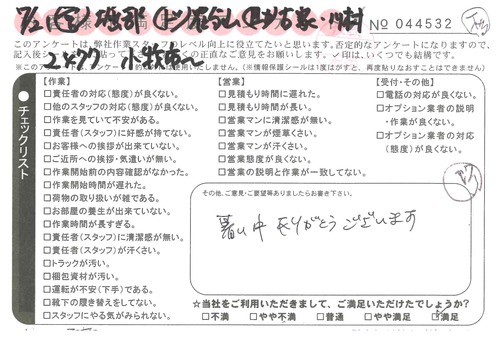 No 044532
このアンケートは、弊社作業スタッフのレベル向上に役立てたいと思います。否定的なアンケートになりますので、
2027 小牧市〜
チェックリスト
【作業】
□責任者の対応(態度)が良くない。
□他のスタッフの対応(態度)が良くない。
□作業を見ていて不安がある。
□責任者(スタッフ)に好感が持てない。
□お客様への挨拶が出来ていない。
□ご近所への挨拶・気遣いが無い。
□作業開始前の内容確認がなかった。
□作業開始時間が遅れた。
□荷物の取り扱いが雑である。
□お部屋の養生が出来ていない。
□作業時間が長すぎる。
□責任者(スタッフ)に清潔感が無い。
□責任者(スタッフ)が汗くさい。
□トラックが汚い。
□梱包資材が汚い。
□運転が不安(下手)である。
□靴下の履き替えをしてない。
□スタッフにやる気がみられない。
【営業】
□見積もり時間に遅れた。
□見積もり時間が長い。
□営業マンに清潔感が無い。
□営業マンが煙草くさい。
□営業マンが汗くさい。
□営業態度が良くない。
□営業の説明と作業が一致してない。
【受付・その他】
□電話の対応が良くない。
□オプション業者の説明
・作業が良くない。
□オプション業者の対応
(態度)が良くない。
その他、ご意見・ご要望等ありましたらお書き下さい。
暑い中 ありがとうございます
☆当社をご利用いただきまして、ご満足いただけたでしょうか?
□不満 □やや不満 □普通 □やや満足 ☑満足